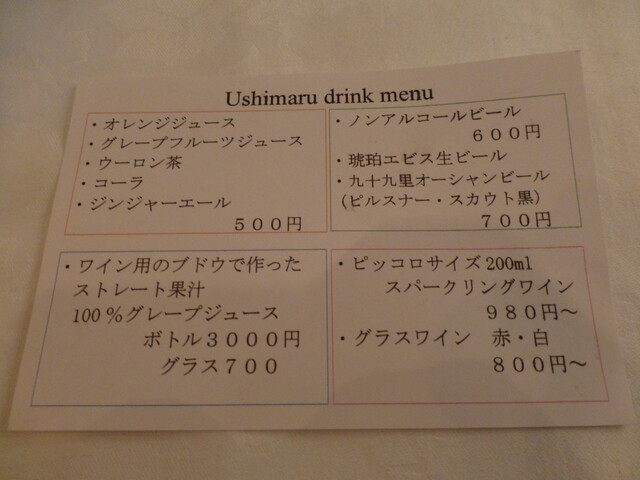 Ushimaru drink menu
・オレンジジュース
・グレープフルーツジュース
・ウーロン茶
・コーラ
・ジンジャーエール
５００円
・ノンアルコールビール
６００円
・琥珀エビス生ビール
・九十九里オーシャンビール
(ピルスナー・スカウト黒)
７００円
・ワイン用のブドウで作った
ストレート果汁
100％グレープジュース
ボトル３０００円
グラス７００
・ピッコロサイズ 200ml
スパークリングワイン
９８０円～
・グラスワイン　赤・白
８００円～